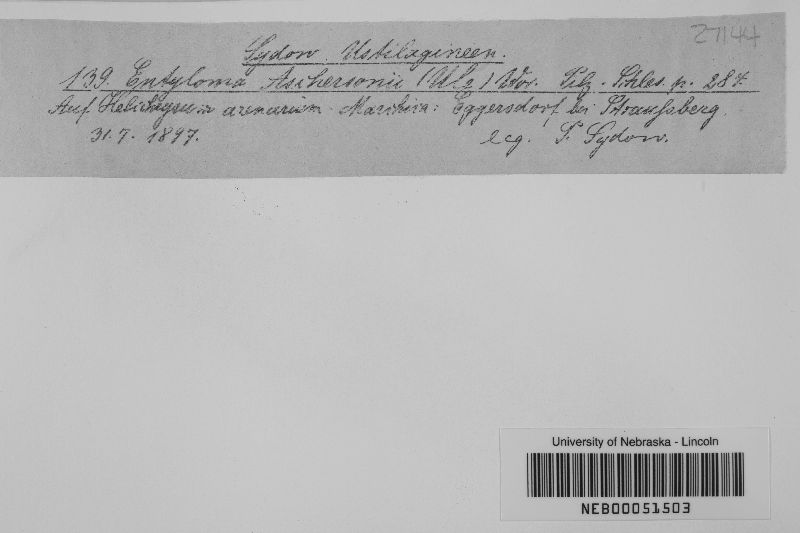 27144
Sydow. Ustilagineen.
139. Entyloma Aschersonii (Ule) Wor. Pilz. Schles. p. 287.
Auf Helichrysum arenarium. Marchica: Eggersdorf bei Straussberg.
31.7.1897. leg. P. Sydow.
University of Nebraska - Lincoln
NEB00051503